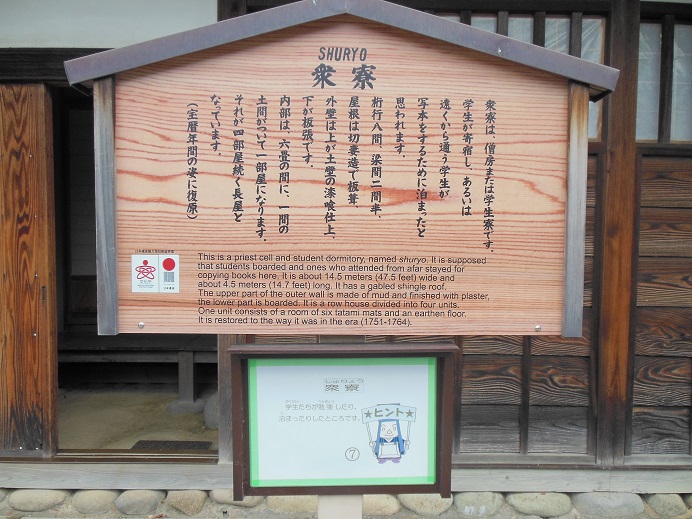 SHURYO
衆寮
衆寮は、僧房または学生寮です。
学生が寄宿し、あるいは
遠くから通う学生が
写本をするために泊まったと
思われます。
桁行八間、梁間二間半、
屋根は切妻造で板葺、
外壁は上が土壁の漆喰仕上、
下が板張です。
内部は、六畳の間に、一間の
土間がついて一部屋になります。
それが四部屋続く長屋と
なっています。
（宝暦年間の姿に復原）
This is a priest cell and student dormitory, named shuryo. It is supposed
that students boarded and ones who attended from afar stayed for
copying books here. It is about 14.5 meters (47.5 feet) wide and
about 4.5 meters (14.7 feet) long. It has a gabled shingle roof.
The upper part of the outer wall is made of mud and finished with plaster,
the lower part is boarded. It is a row house divided into four units.
One unit consists of a room of six tatami mats and an earthen floor.
It is restored to the way it was in the era (1751-1764).
しゅりょう
衆寮
学生たちが勉強したり、
泊まったりしたところです。
★ヒント★
⑦